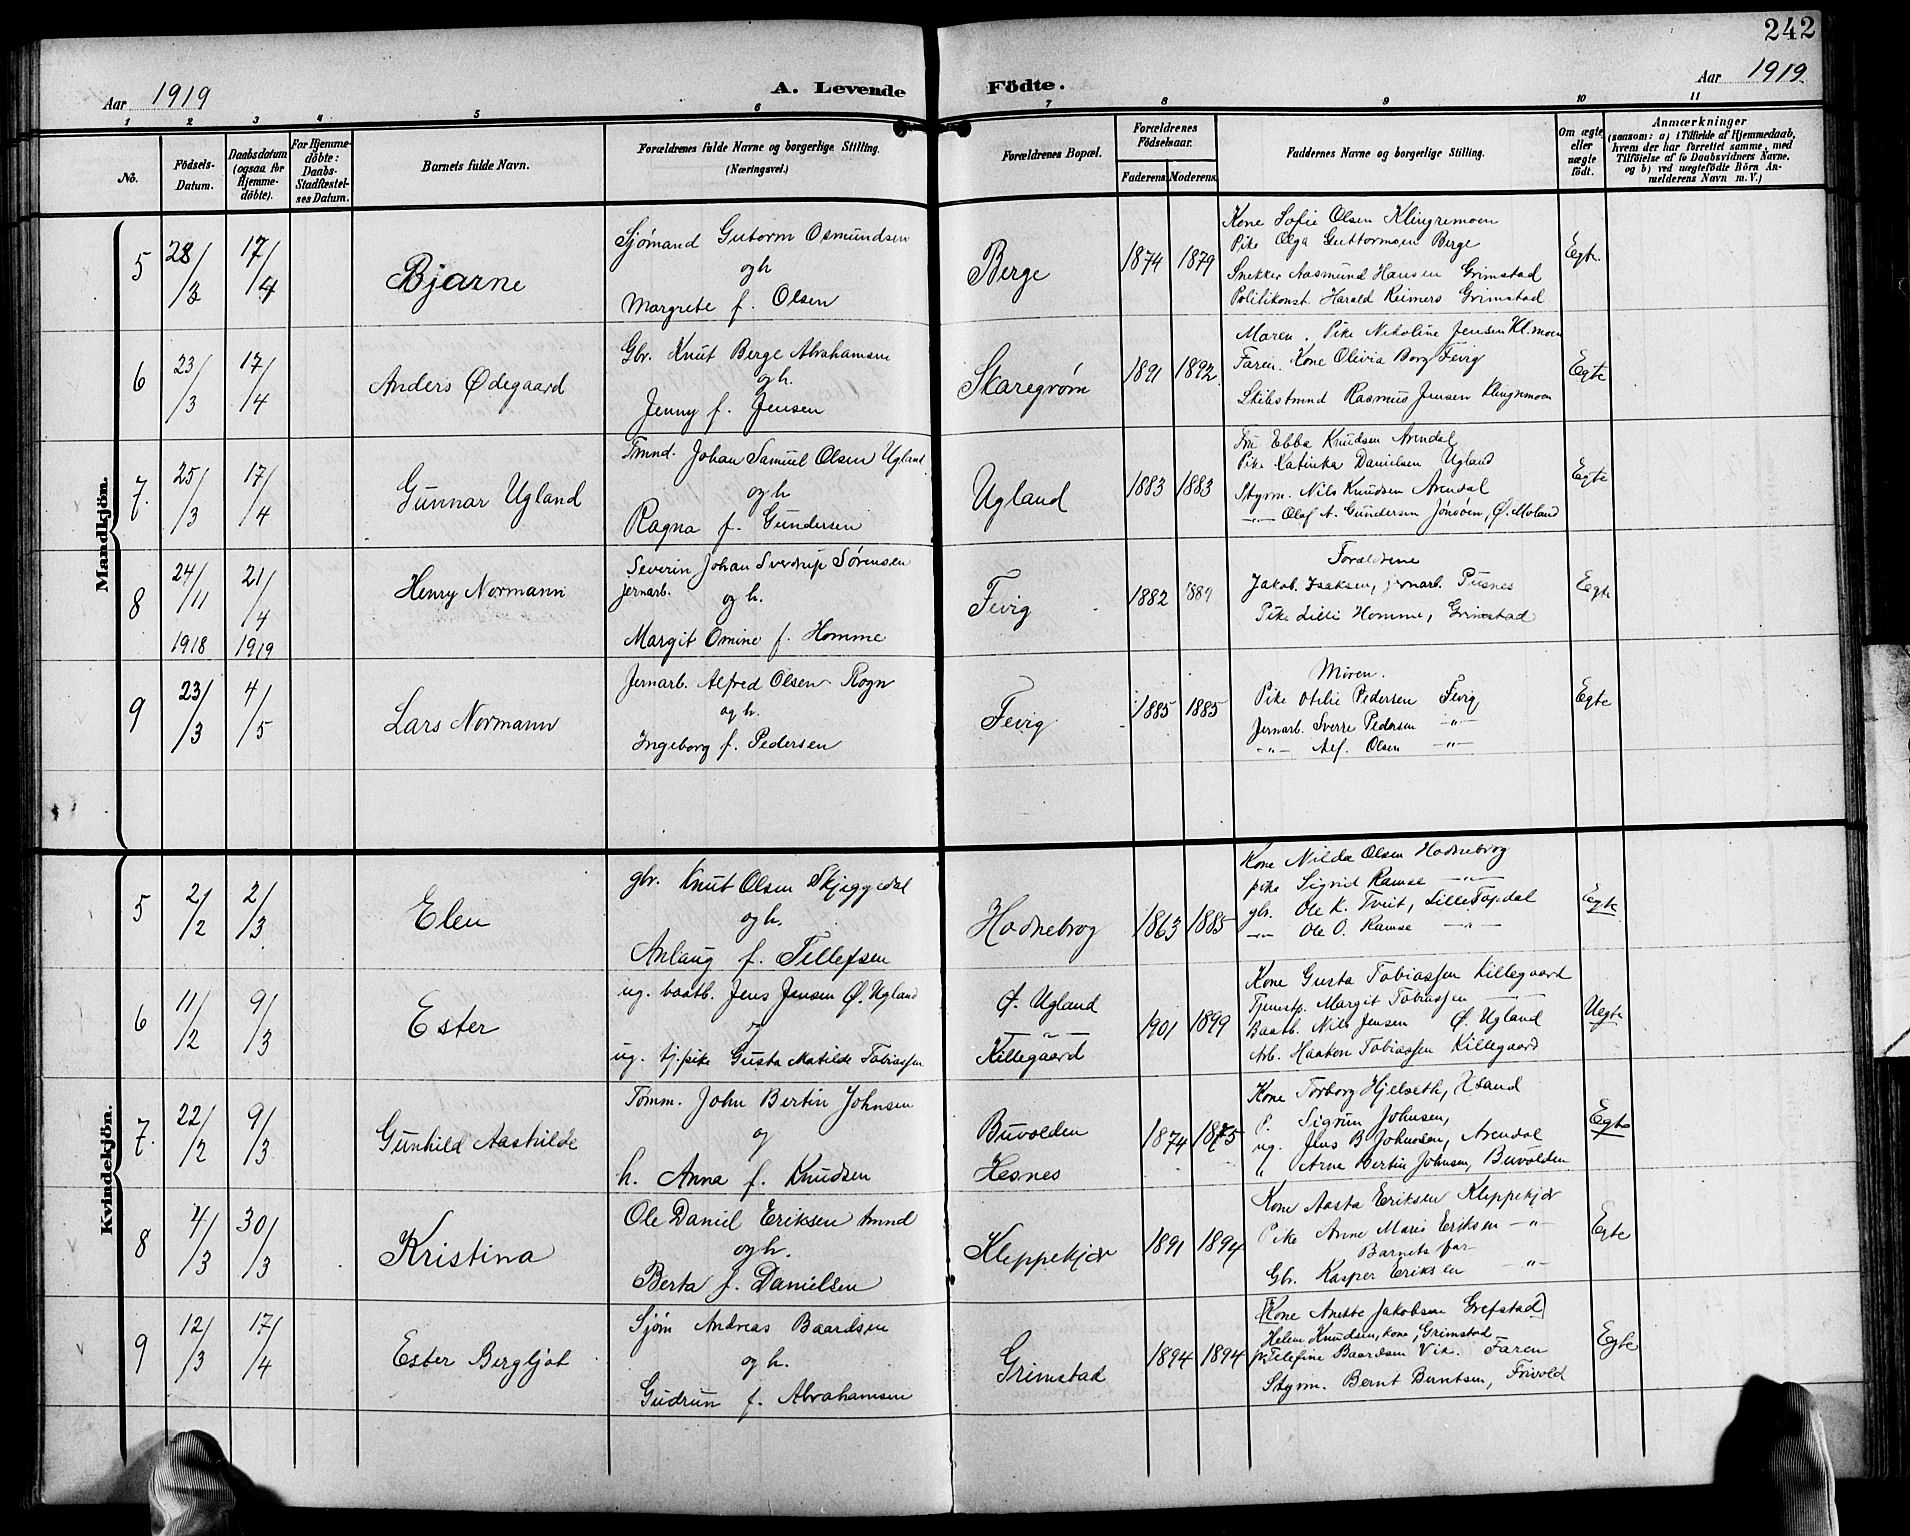 242
Aar 1919
A. Levende
Födte.
Aar 1919.
1 2 3 4 5 6 7 8 9 10 11
No.
Födsels-Datum.
Daabsdatum (ogsaa for Hjemmedöbte).
For Hjemmedöbte: Daabs-Stadfæstelses Datum.
Barnets fulde Navn.
Forældrenes fulde Navne og borgerlige Stilling. (Næringsvei.)
Forældrenes Bopæl.
Forældrenes Födselsaar.
Faderens. Moderens.
Faddernes Navne og borgerlige Stilling.
Om ægte eller uægte födt.
Anmærkninger
(saasom: a) i Tilfælde af Hjemmedaab, hvem der har forrettet samme, med Tilföielse af to Daabsvidners Navne, og b) ved uægtefödte Börn Anmelderens Navn m. V.)
Mandkjön.
5 28/3 17/4
Bjarne
Sjømand Gutorm Osmundsen
ogh
Margrete f. Olsen
Berge
1874 1879
Kone Sofie Olsen Klingremoen
Pike Olga Guttormsen Berge
Snekker Aasmund Hansen Grimstad
Politikonst. Harald Reimers Grimstad
Egt.
6 23/3 17/4
Anders Ødegaard
Gbr. Knut Berge Abrahamsen
ogh.
Jenny f. Jensen
Skaregrøm
1891 1892.
Moren. Pike Nikoline Jensen Kl.moen
Faren. Kone Olivia Borg Fevig
Skibstmnd Rasmus Jensen Klingremoen
Egte
7. 25/3 17/4
Gunnar Ugland
Tmnd. Johan Samuel Olsen Ugland
ogh
Ragna f. Gundersen
Ugland
1883 1883
Fru Ebba Knudsen Arendal
Pike Katinka Danielsen Ugland
Styrm. Nils Knudsen Arendal
—"— Olaf A. Gundersen Jonsøen, Ø. Moland
Egte
8 24/11 1918 21/4 1919
Henry Normann
Severin Johan Sverdrup Sørensen
jernarb. og h.
Margit Omine f. Homme
Fevig
1882 1889
Forældrene
Jakob Isaksen, jernarb. Pusnes
Pike Lilli Homme, Grimstad
Egte
9 23/3 4/5
Lars Normann
Jernarb. Alfred Olsen Rogn
ogh.
Ingeborg f. Pedersen
Fevig
1885 1885
Moren.
Pike Otilie Pedersen Fevig
Jernarb. Sverre Pedersen —"—
—"— Alf. Olsen —"—
Egte
Kvindekjön.
5 2/2 2/3
Elen
gbr. Knut Olsen Skjeggedal
ogh.
Anlaug f. Tellefsen
Hodnebrog
1863 1885
Kone Nilda Olsen Hodnebrog
pike Sigrid Ramse —"—
gbr. Ole K. Tveit, LilleTopdal
—"— Ole O. Ramse —"—
Egte
6 11/2 9/3
Ester
ug. baatb. Jens Jensen Ø. Ugland
og
ug. tj.pike Gusta Matilde Tobiassen
Ø. Ugland
—"—
Killegaard
1901 1899
Kone Gusta Tobiassen Killegaard
Tjenstp. Margit Tobiassen —"—
Baatb. Nils Jensen Ø. Ugland
Arb. Haakon Tobiassen Killegaard
Uegte
7. 22/2 9/3
Gunhild Aashilde
Tømm. John Bertin Johnsen
og
h. Anna f. Knudsen
Buvolden
Hesnes
1874 1875
Kone Torborg Hjelseth, Xsand
P. Sigrun Johnsen,
ug. Jens B Johnsen, Arendal
" Arne Bertin Johnsen, Buvolden
Egte
8 4/3 30/3
Kristina
Ole Daniel Eriksen tmnd
ogh.
Berta f. Danielsen
Kleppekjær
1891 1894
Kone Aasta Eriksen Kleppekjær
Pike Anne Marie Eriksen —"—
Barnets far
Gbr. Kasper Eriksen —"—
Egte
9 12/3 17/4
Ester Bergljot
Sjøm Andreas Baardsen
ogh.
Gudrun f. Abrahamsen
Grimstad
1894 1894
[Kone Anette Jakobsen Grefstad]
Helene Knudsen, kone, Grimstad
pk Telefine Baardsen Vik. Faren
Styrm. Bernt Berntsen, Frivold
Egte